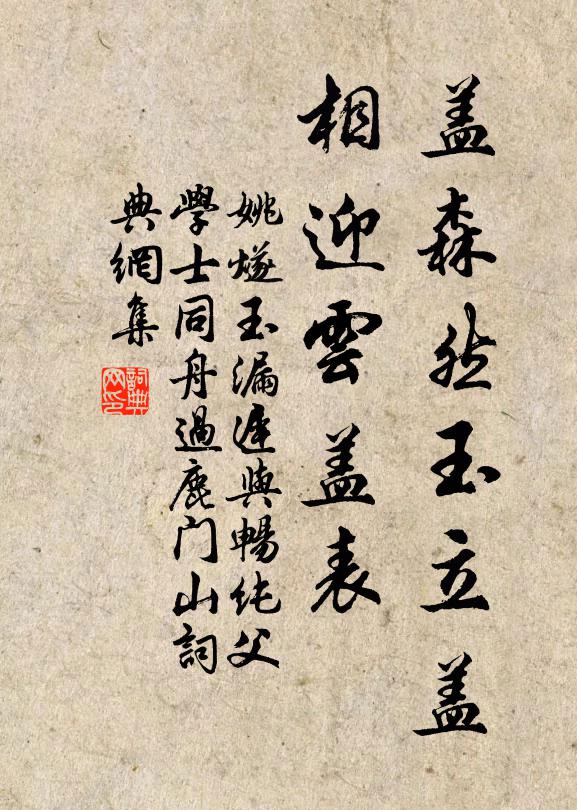 盖森然玉立盖
相迎雲盖表
姚燧玉漏遲與暢純父
學士同舟過鹿门山詞
典網集
詞典网印